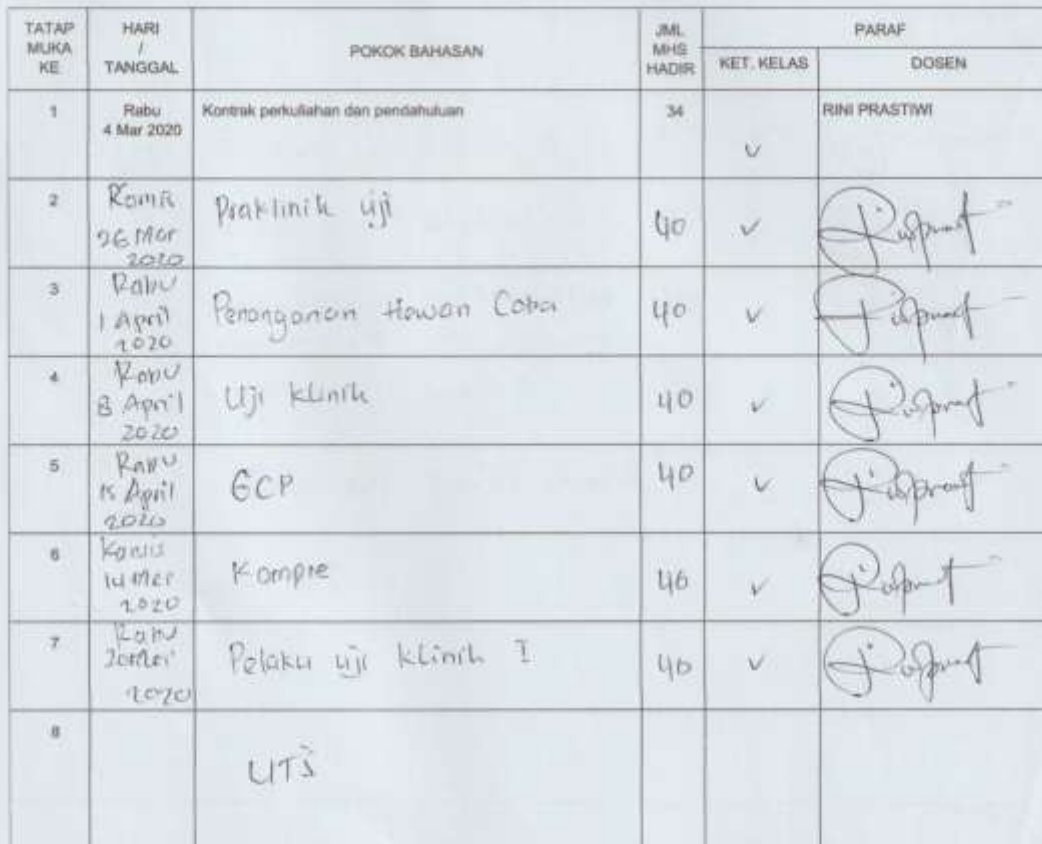 TATAP MUKA KE
HARI / TANGGAL
POKOK BAHASAN
JML MHS HADIR
PARAF
KET. KELAS
DOSEN
1 Rabu 4 Mar 2020 Kontrak perkuliahan dan pendahuluan 34 v RINI PRASTIWI
2 Kamis 26 Mar 2020 Praklinik uji 40 v
3 Rabu 1 April 2020 Penanganan Hewan Coba 40 v
4 Rabu 8 April 2020 Uji klinik 40 v
5 Rabu 15 April 2020 GCP 40 v
6 Kamis 14 Mei 2020 Kompre 40 v
7 Rabu 20 Mei 2020 Pelaku uji klinik I 40 v
8 UTS